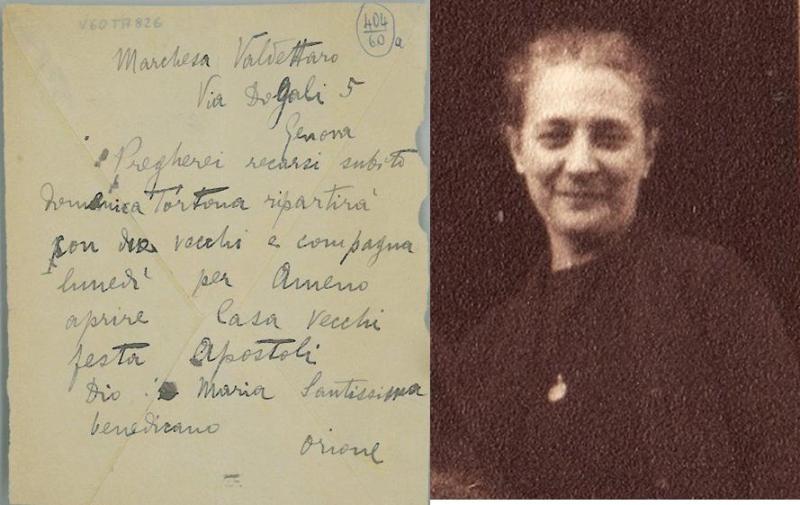 V60T7826
404
60 a
Marchesa Valdettaro
Via Dogali 5
Genova
Pregherei recarsi subito
domenica Tortona ripartirà
con due vecchi e compagna
lunedì per Ameno
aprire Casa vecchi
festa Apostoli
Dio e Maria Santissima
benedicano
Orione